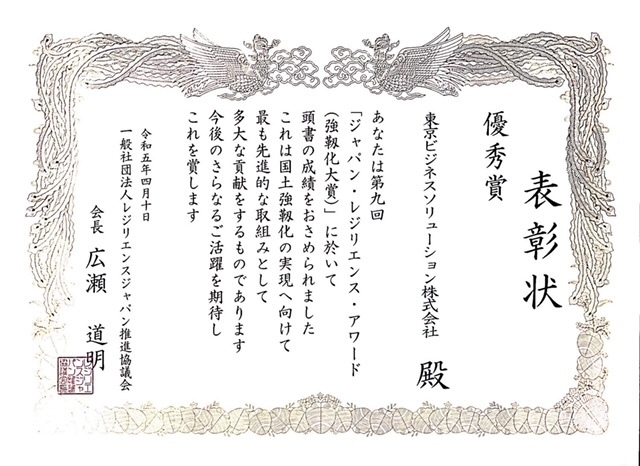 表彰状
優秀賞
東京ビジネスソリューション株式会社 殿
あなたは第九回
「ジャパン・レジリエンス・アワード
(強靱化大賞)」に於いて
頭書の成績をおさめられました
これは国土強靱化の実現へ向けて
最も先進的な取組みとして
多大な貢献をするものであります
今後のさらなるご活躍を期待し
これを賞します
令和五年四月十日
一般社団法人レジリエンスジャパン推進協議会
会長 広瀬 道明